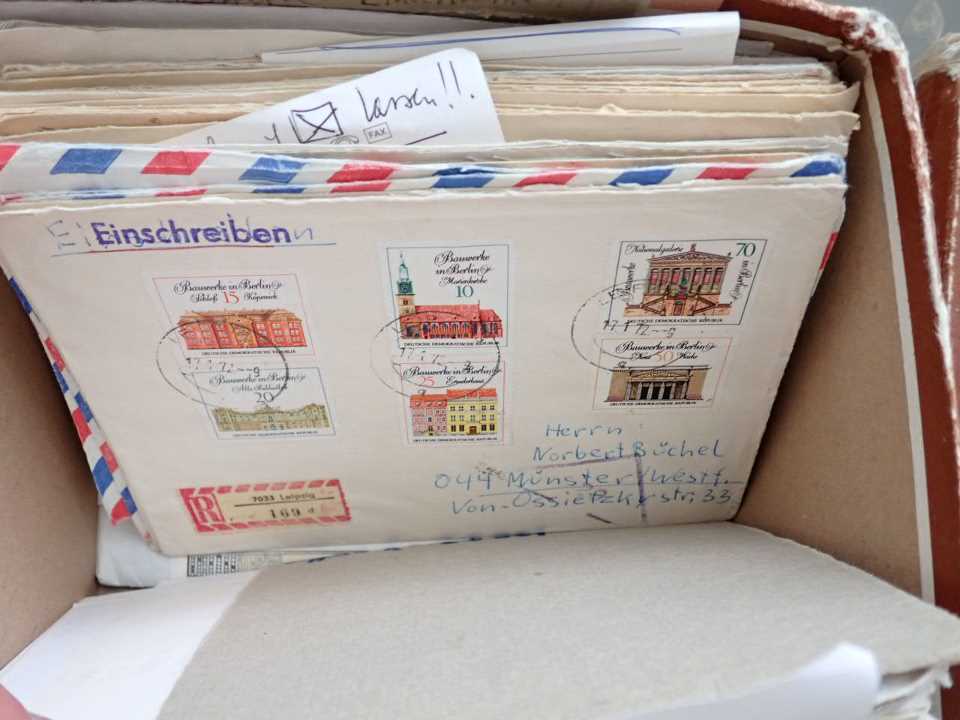 lassen!!
FAX
Einschreiben
Bauwerke in Berlin
Schloß 15 Köpenick
DEUTSCHE DEMOKRATISCHE REPUBLIK
Bauwerke
in Berlin
Marienkirche
10
DEUTSCHE DEMOKRATISCHE REPUBLIK
Nationalgalerie 70
Bauwerke in Berlin
DEUTSCHE DEMOKRATISCHE REPUBLIK
17.1.72--9
Bauwerke in Berlin
Alte Bibliothek
20
DEUTSCHE DEMOKRATISCHE REPUBLIK
Bauwerke in Berlin
25 Ermelerhaus
DEUTSCHE DEMOKRATISCHE REPUBLIK
Bauwerke in Berlin
Neue 50 Wache
DEUTSCHE DEMOKRATISCHE REPUBLIK
Herrn
Norbert Büchel
044 Münster/Westf.
Von-Ossietzkystr. 33
R
7033 Leipzig
169 d